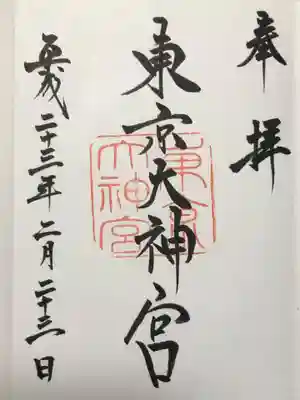 奉拝
東京大神宮
東京大神宮
平成二十三年二月二十三日